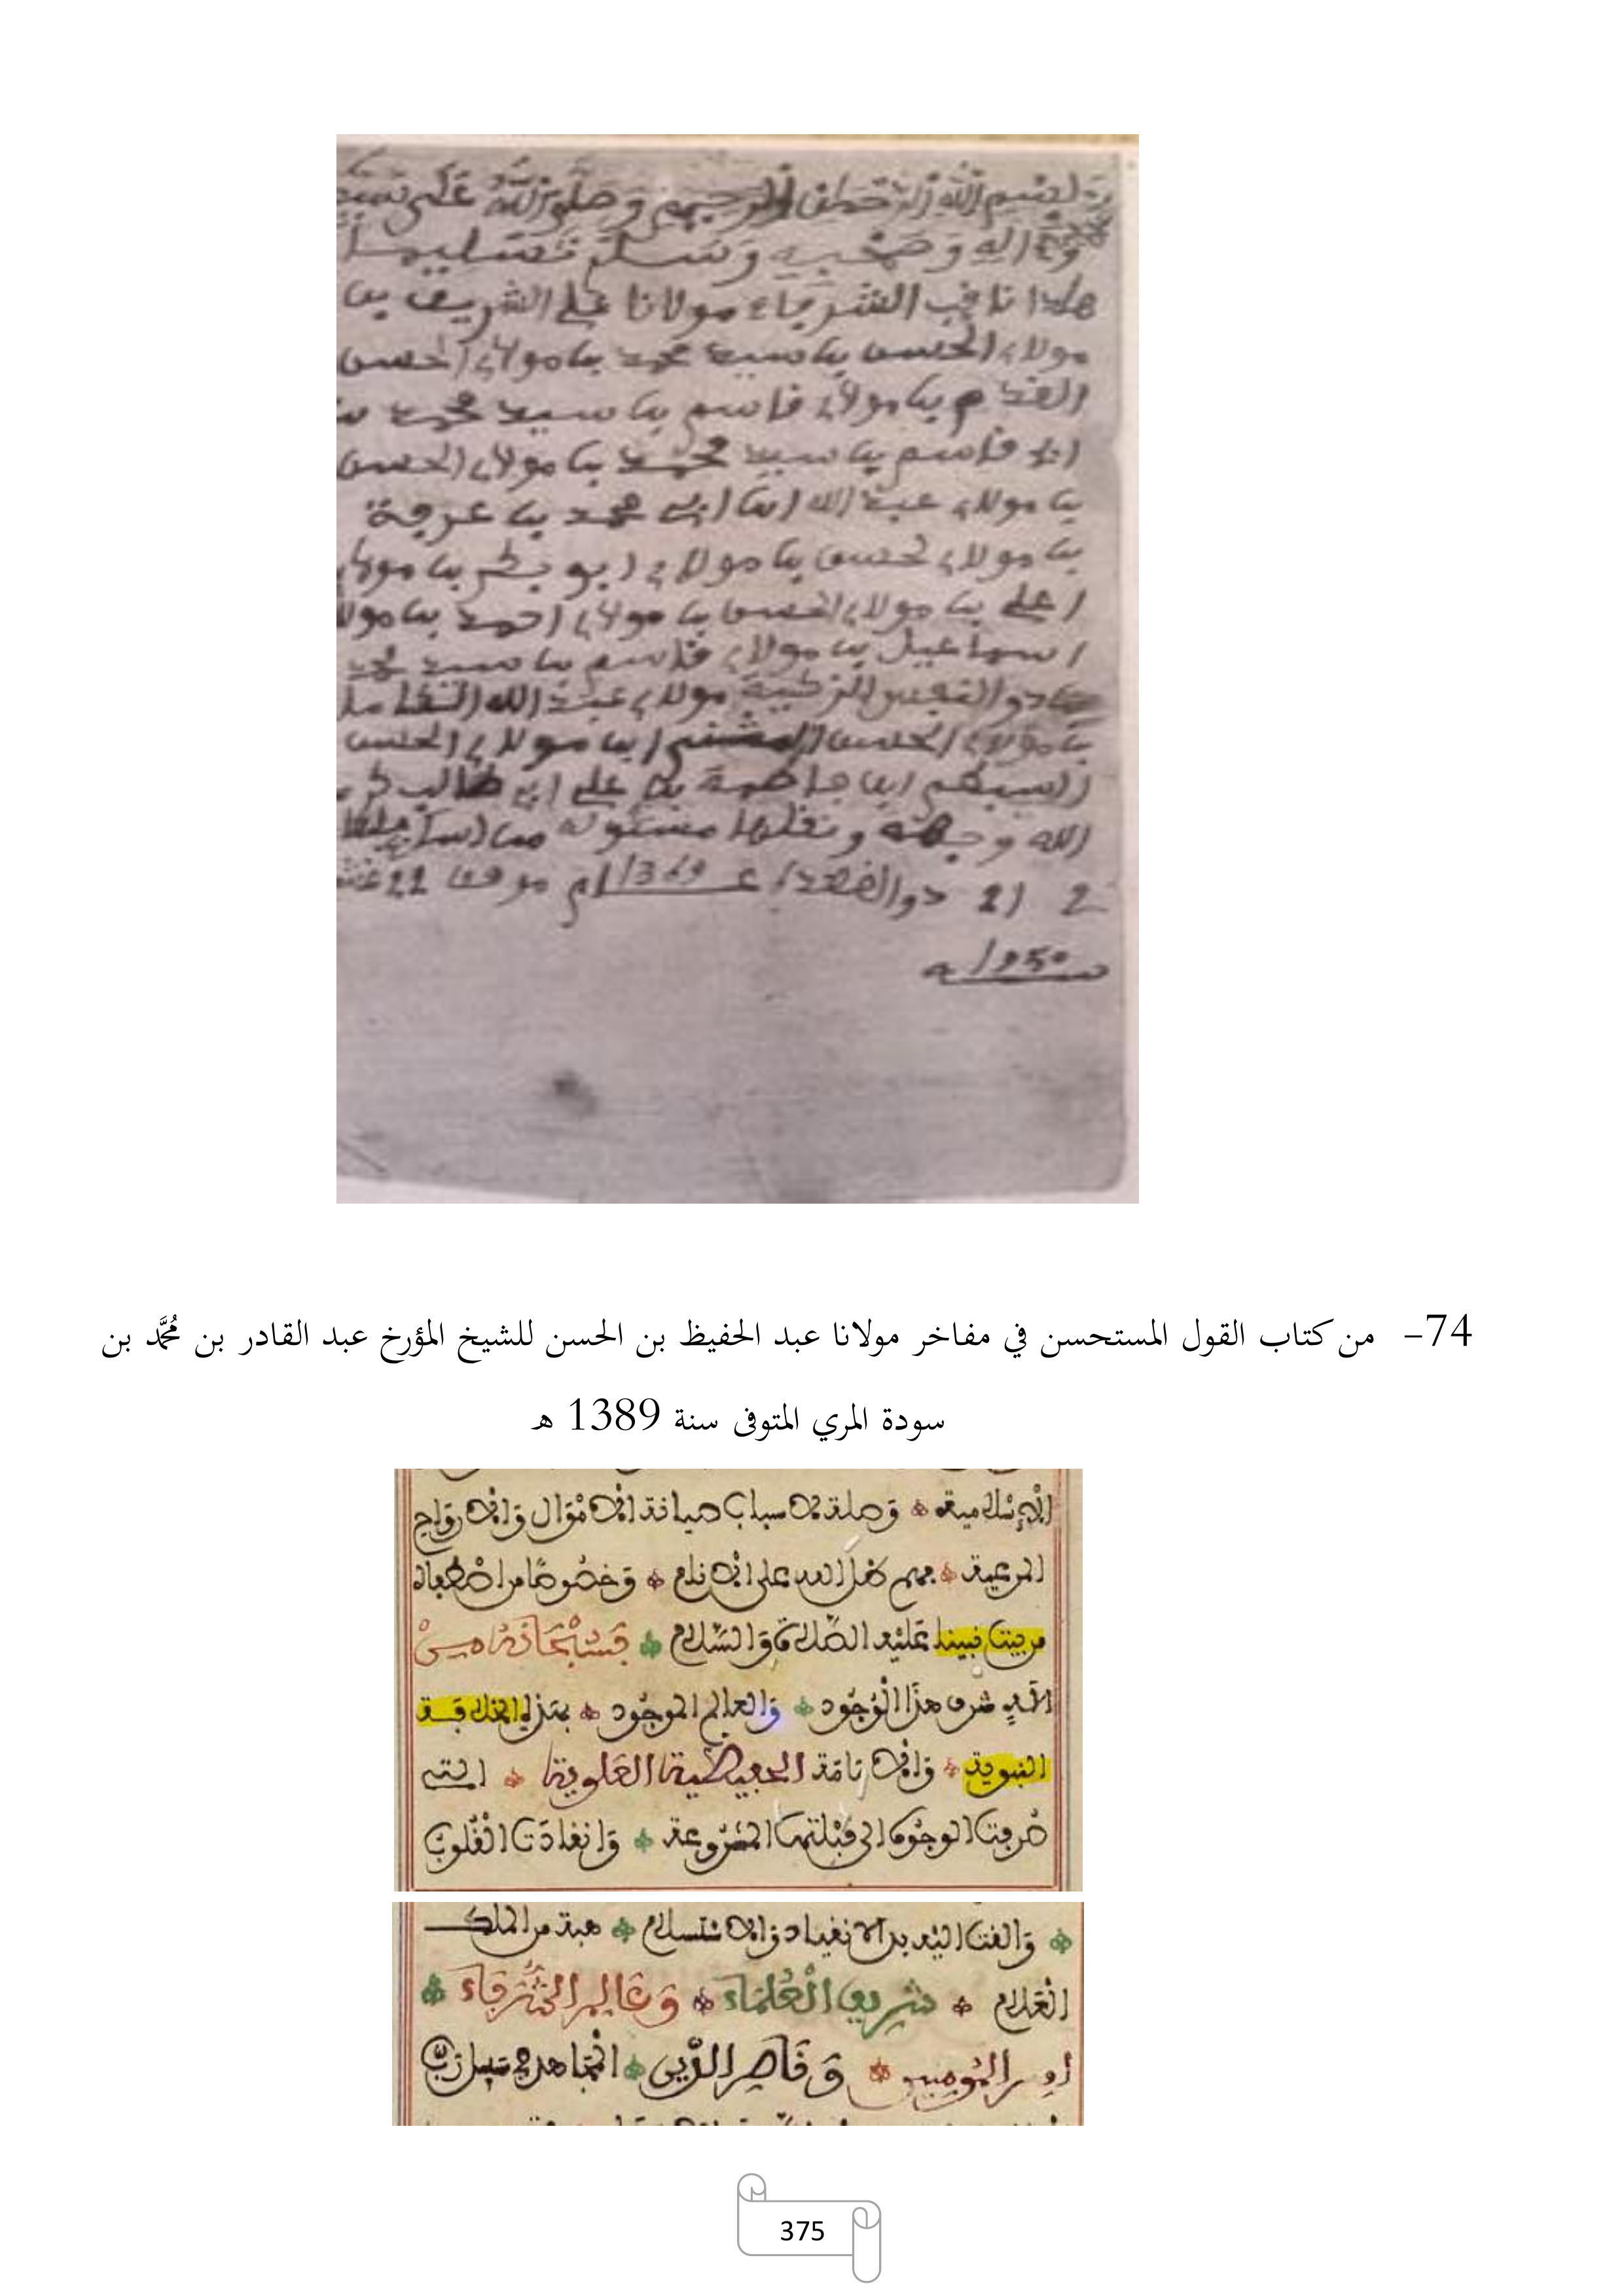 بسم الله الرحمن الرحيم وصلى الله على
وءاله وصحبه وسلم تسليما
هاذا الشرفاء مولانا علي الشريف بن
مولاي الحسن بن سيد محمد بن مولاي الحسن
بن مولاي قاسم بن سيد محمد
قاسم بن سيد محمد بن مولاي الحسن
بن مولاي عبد الله ابن ابي محمد بن عرفة
بن مولاي لحسن بن مولاي ابو بكر بن مولاي
علي بن مولاي الحسن بن مولاي احمد بن مولا
اسماعيل بن مولاي قاسم بن سيد محمد
ذو النفس الزكية مولاي عبد الله الكامل
بن مولاي الحسن المثنى ابن مولاي الحسن
السبط ابن فاطمة علي ابي طالب كرم
الله وجهه
21 1369 موفق 22
سنة 1950
74- من كتاب القول المستحسن في مفاخر مولانا عبد الحفيظ بن الحسن للشيخ المؤرخ عبد القادر بن مُحَمَّد بن
سودة المري المتوفى سنة 1389 ه
الإسلامية وصلة لأسباب صيانة الأموال والأرواح
المرعية فهم ظل الله على الأنام وخصوصا من اصطفاه
من بيت نبينا عليه الصلاة والسلام فسبحانه من
الذي شرف هذا الوجود والعالم الموجود بهذه الخلافة
النبوية والإمامة الحفيظية العلوية التي
صرفت الوجوه الى قبلتها المشروعة وانقادت القلوب
والقت اليه يد الانقياد والاستسلام هبة من الملك
العلام شريف العلماء وعالم الشرفاء
امير المومنين وناصر الدين المجاهد في سبيل رب
375